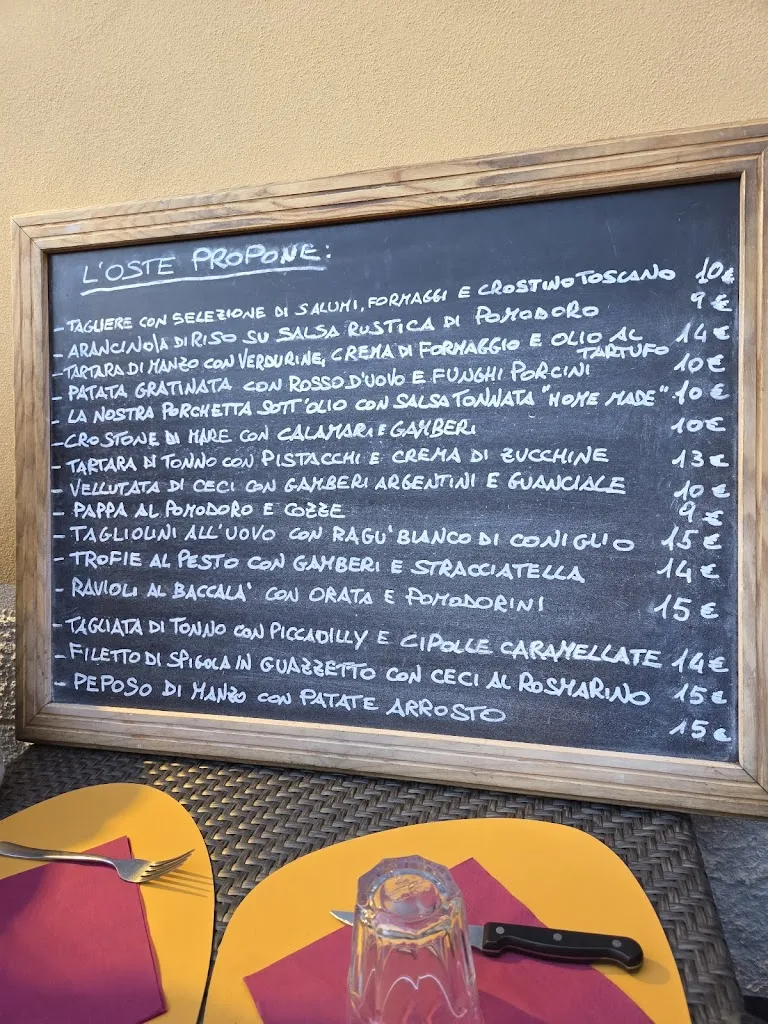 L'OSTE PROPONE:
- TAGLIERE CON SELEZIONE DI SALUMI, FORMAGGI E CROSTINO TOSCANO 10€
- ARANCINO/A DI RISO SU SALSA RUSTICA DI POMODORO 9€
- TARTARA DI MANZO CON VERDURINE, CREMA DI FORMAGGIO E OLIO AL 14€
TARTUFO
- PATATA GRATINATA CON ROSSO D'UOVO E FUNGHI PORCINI 10€
- LA NOSTRA PORCHETTA SOTT'OLIO CON SALSA TONNATA "HOME MADE" 10€
- CROSTONE DI MARE CON CALAMARI E GAMBERI 10€
- TARTARA DI TONNO CON PISTACCHI E CREMA DI ZUCCHINE 13€
- VELLUTATA DI CECI CON GAMBERI ARGENTINI E GUANCIALE 10€
- PAPPA AL POMODORO E COZZE 9€
- TAGLIOLINI ALL'UOVO CON RAGU' BIANCO DI CONIGLIO 15€
- TROFIE AL PESTO CON GAMBERI E STRACCIATELLA 14€
- RAVIOLI AL BACCALA' CON ORATA E POMODORINI 15€
- TAGLIATA DI TONNO CON PICCADILLY E CIPOLLE CARAMELLATE 14€
- FILETTO DI SPIGOLA IN GUAZZETTO CON CECI AL ROSMARINO 15€
- PEPOSO DI MANZO CON PATATE ARROSTO 15€